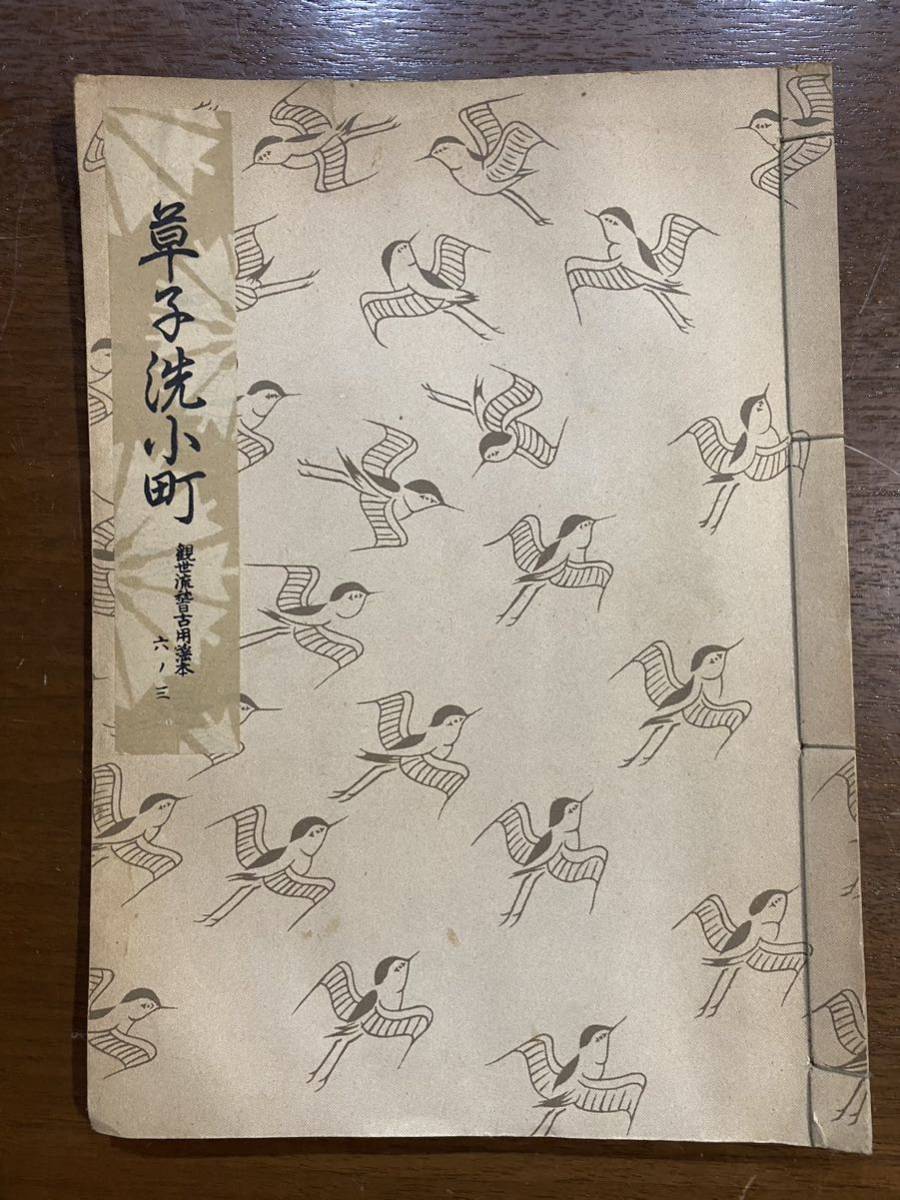 草子洗小町
觀世流稽古用謠本
六ノ三